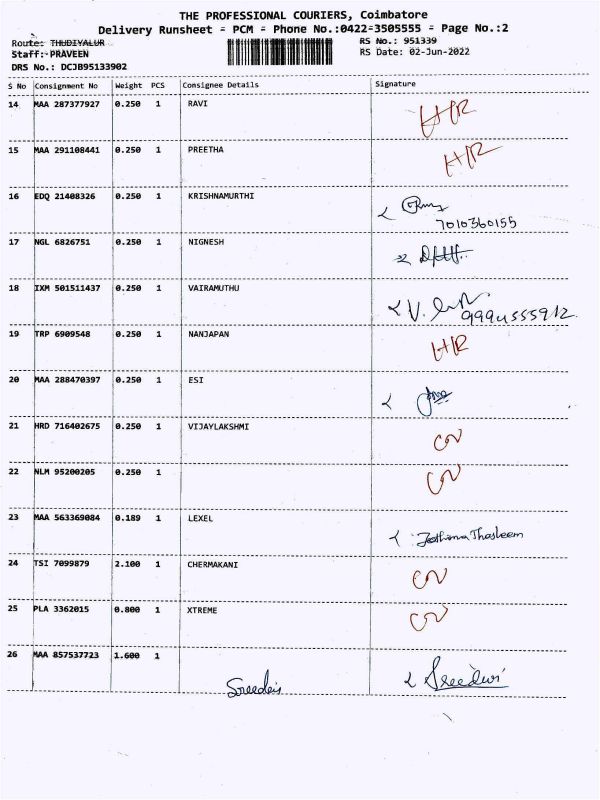 THE PROFESSIONAL COURIERS, Coimbatore
Delivery Runsheet = PCM = Phone No.:0422-3505555 = Page No.:2
Route: THUDIYALUR
RS No.: 951339
Staff: PRAVEEN
RS Date: 02-Jun-2022
DRS No.: DCJB95133902
S No Consignment No Weight PCS Consignee Details Signature
14 MAA 287377927 0.250 1 RAVI HR
15 MAA 291108441 0.250 1 PREETHA HR
16 EDQ 21408326 0.250 1 KRISHNAMURTHI
7010360155
17 NGL 6826751 0.250 1 NIGNESH
18 IXM 501511437 0.250 1 VAIRAMUTHU
19 TRP 6909548 0.250 1 NANJAPAN HR
20 MAA 288470397 0.250 1 ESI
21 HRD 716402675 0.250 1 VIJAYLAKSHMI
22 NLM 95200205 0.250 1
23 MAA 563369084 0.189 1 LEXEL Jothima Thasleem
24 TSI 7099879 2.100 1 CHERMAKANI
25 PLA 3362015 0.800 1 XTREME
26 MAA 857537723 1.600 1